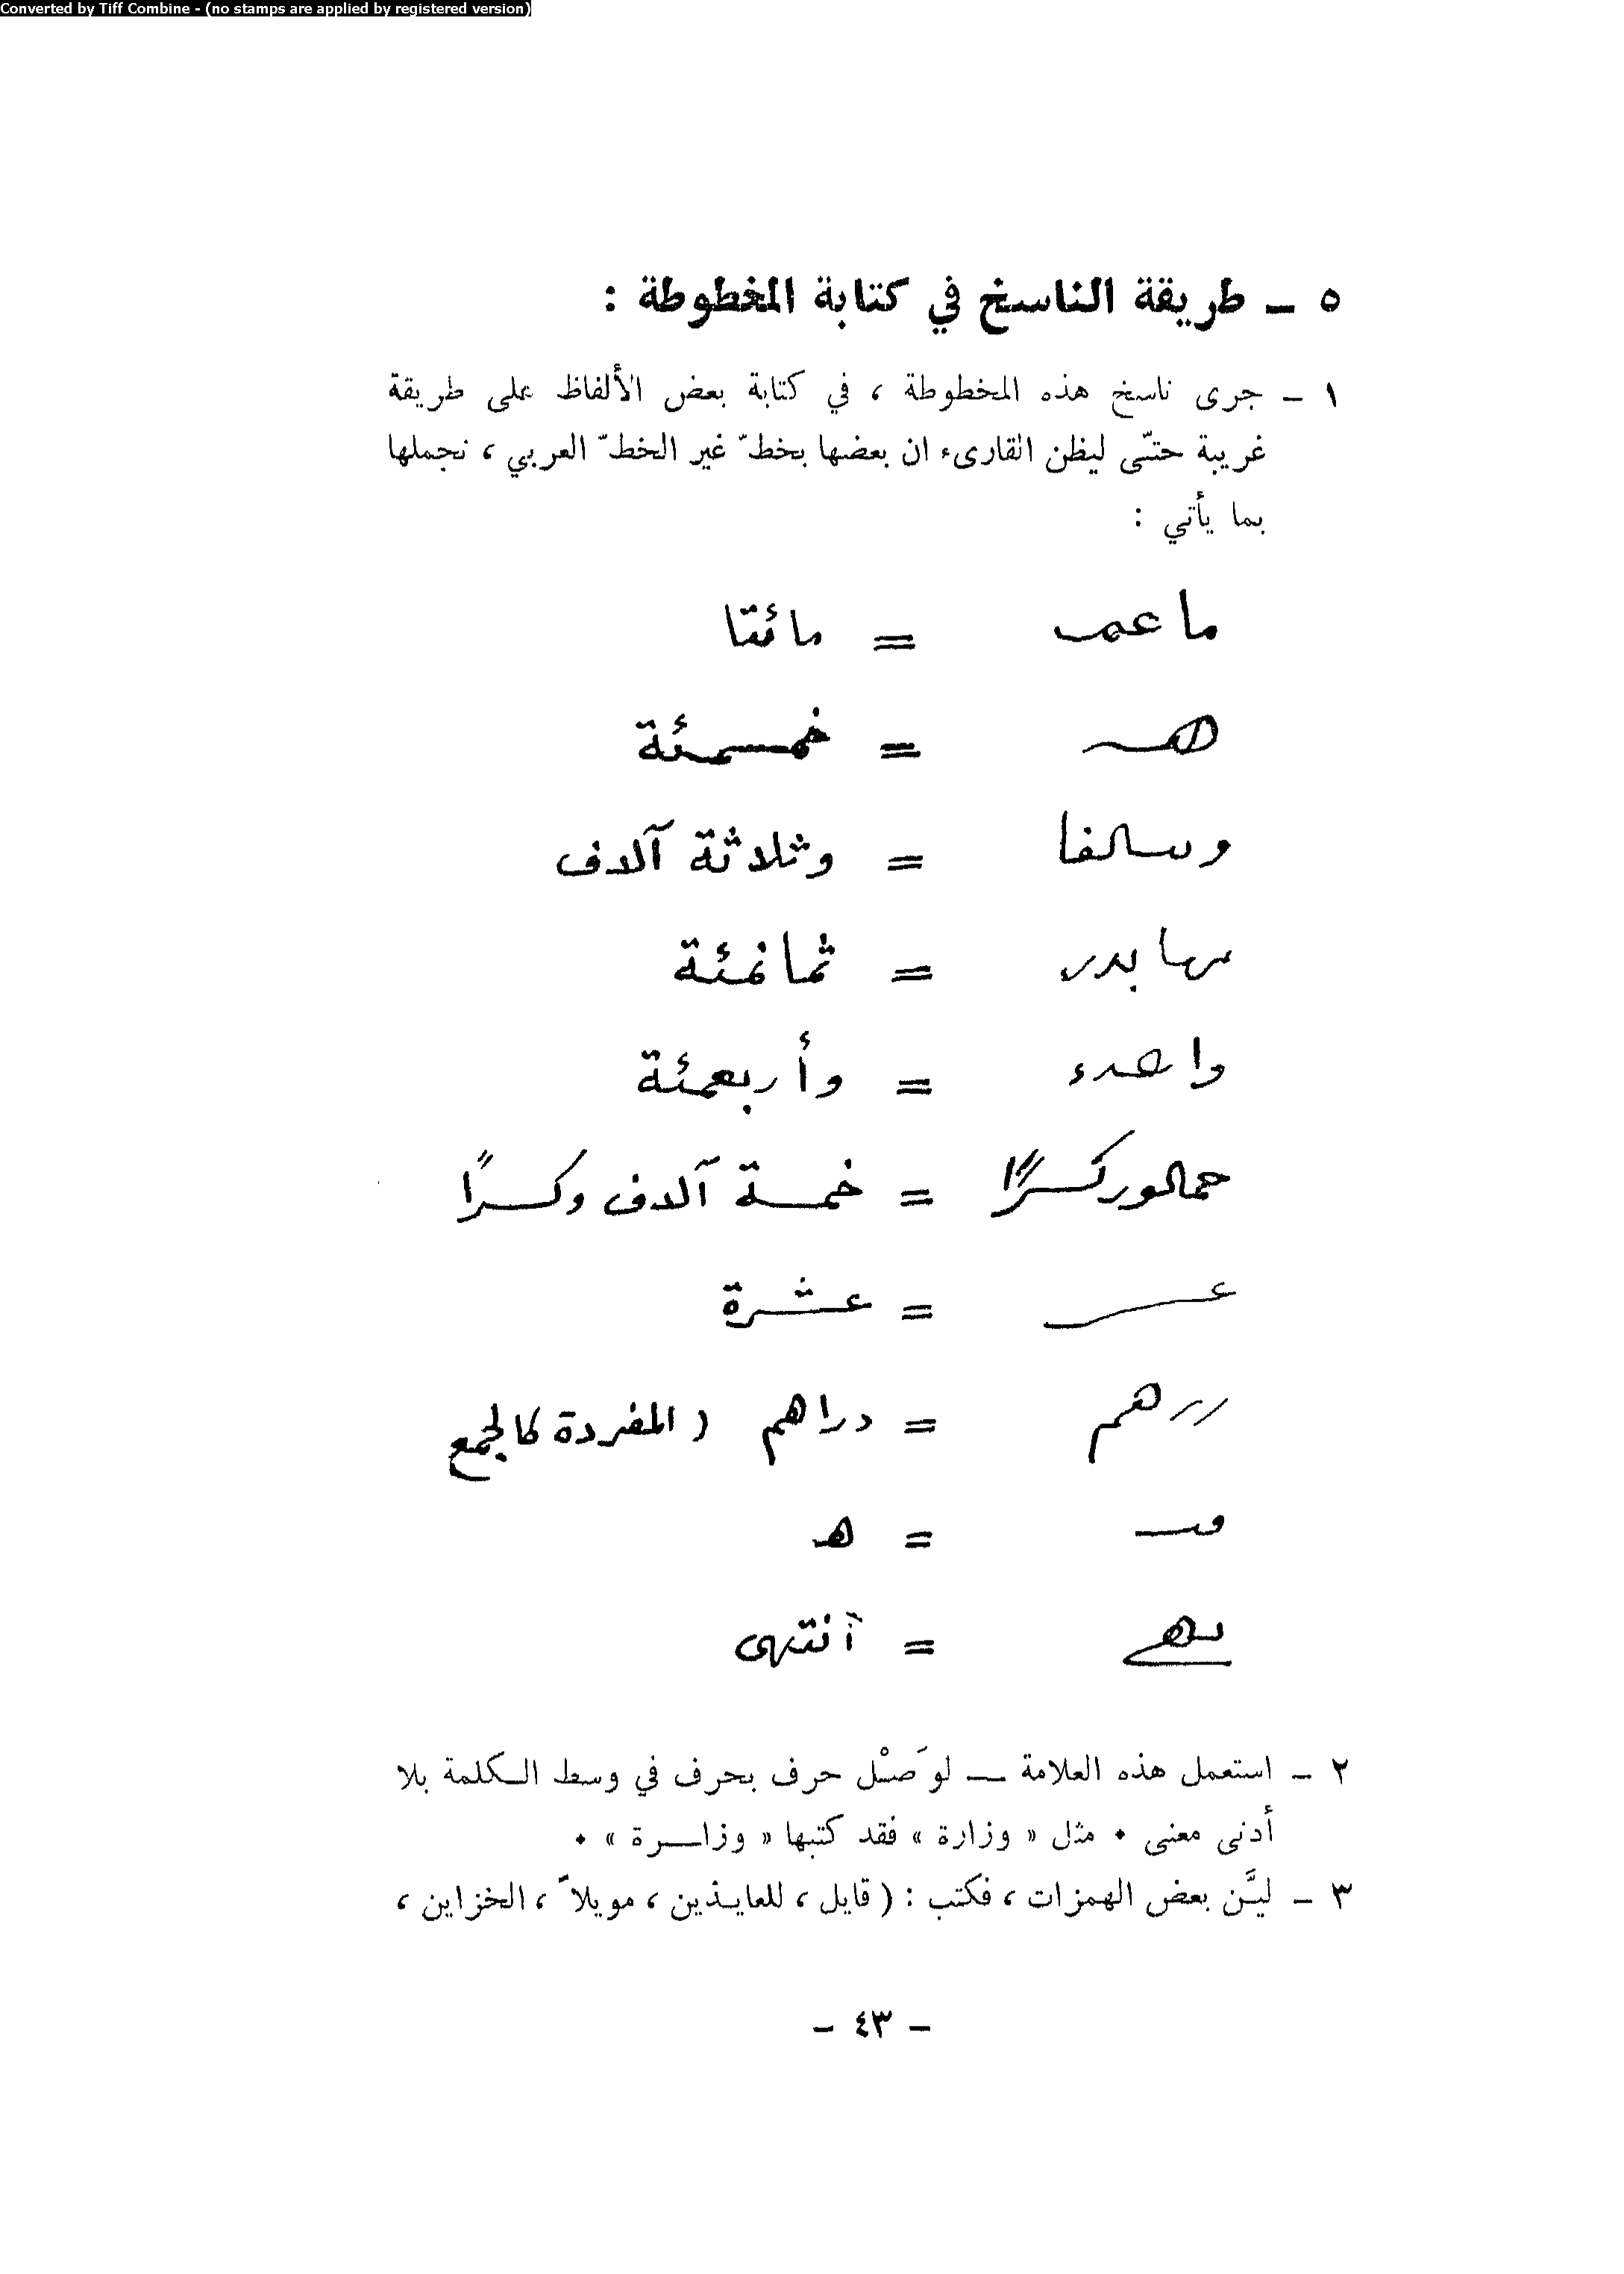 Converted by Tiff Combine - (no stamps are applied by registered version)
٥ ــ طريقة الناسخ في كتابة المخطوطة :
١ ــ جرى ناسخ هذه المخطوطة ، في كتابة بعض الألفاظ على طريقة
غريبة حتّى ليظن القارىء ان بعضها بخطّ غير الخطّ العربي ، نجملها
بما يأتي :
= مائتا
= خمسمئة
= وثلاثة آلاف
= ثمانمئة
= وأربعمئة
= خمسة آلاف وكسرًا
= عشرة
= دراهم ( المفردة كالجمع
= هـ
= آنتهى
٢ ــ استعمل هذه العلامة ـــ لوَصْل حرف بحرف في وسط الـكلمة بلا
أدنى معنى • مثل « وزارة » فقد كتبها « وزاـــرة » •
٣ ــ ليَّن بعض الهمزات ، فكتب : ( قايل ، للعايـذين ، مويلاً ، الخزاين ،
– ٤٣ –